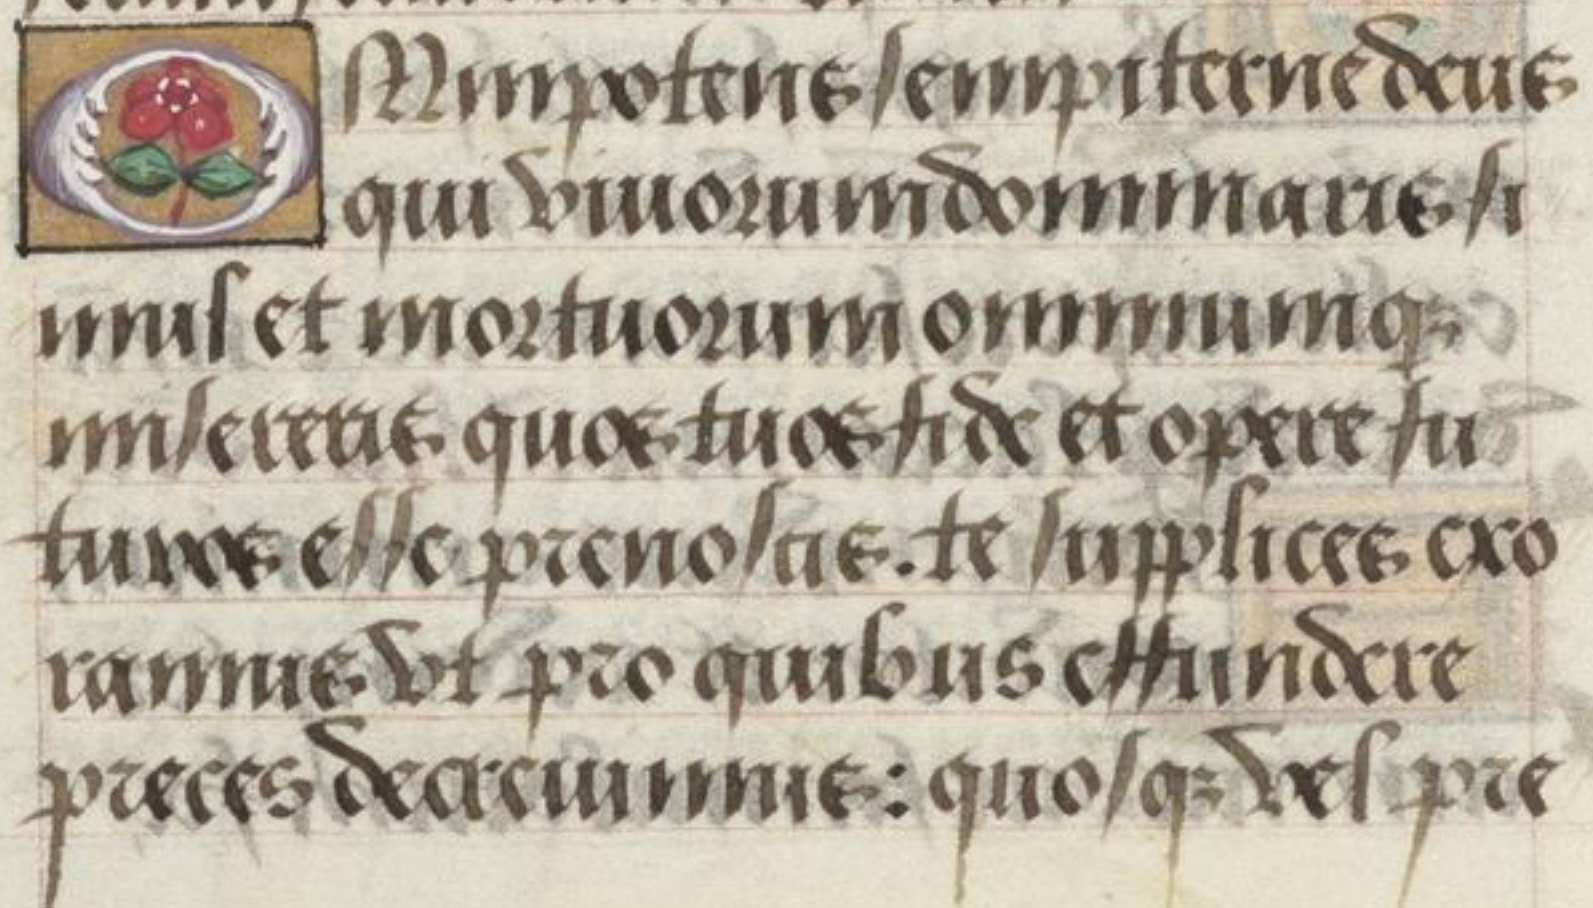 OMnipotens sempiterne deus
qui viuorum dominaris si
mul et mortuorum omniumq3
misereris quos tuos fide et opere fu
turos esse prenoscis. te supplices exo
ramus vt pro quibus effundere
preces decreuimus: quosq3 vel pre